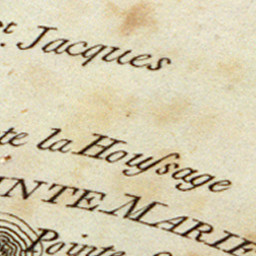 t. Jacques
te la Houſsage
INTE MARIE
Pointe